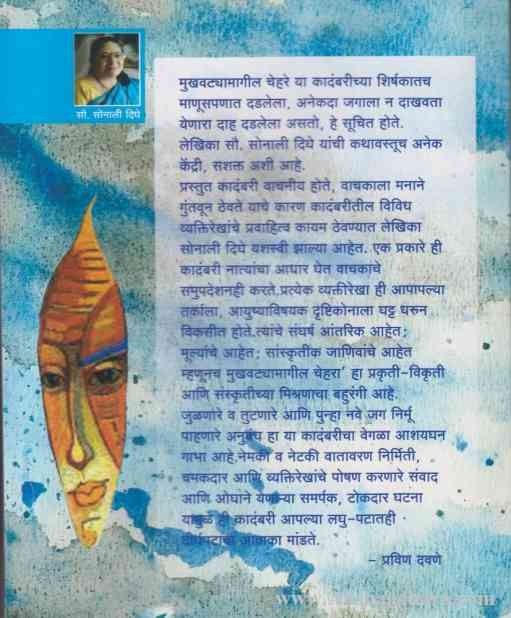 सौ. सोनाली दिघे
मुखवट्यामागील चेहरे या कादंबरीच्या शिर्षकातच
माणूसपणात दडलेला, अनेकदा जगाला न दाखवता
येणारा दाह दडलेला असतो, हे सूचित होते.
लेखिका सौ. सोनाली दिघे यांची कथावस्तूच अनेक
केंद्री, सशक्त अशी आहे.
प्रस्तुत कादंबरी वाचनीय होते, वाचकाला मनाने
गुंतवून ठेवते याचे कारण कादंबरीतील विविध
व्यक्तिरेखांचे प्रवाहित्व कायम ठेवण्यात लेखिका
सोनाली दिघे यशस्वी झाल्या आहेत. एक प्रकारे ही
कादंबरी नात्यांचा आधार घेत वाचकांचे
समुपदेशनही करते.प्रत्येक व्यक्तीरेखा ही आपापल्या
तर्काला, आयुष्याविषयक दृष्टिकोनाला घट्ट धरुन
विकसीत होते.त्यांचे संघर्ष आंतरिक आहेत;
मूल्यांचे आहेत; सांस्कृतीक जाणिवांचे आहेत
म्हणूनच मुखवट्यामागील चेहरा' हा प्रकृती-विकृती
आणि संस्कृतीच्या मिश्रणाचा बहुरंगी आहे.
जुळणारे व तुटणारे आणि पुन्हा नवे जग निर्मू
पाहणारे अनुबंध हा या कादंबरीचा वेगळा आशयघन
गाभा आहे.नेमकी व नेटकी वातावरण निर्मिती,
चमकदार आणि व्यक्तिरेखांचे पोषण करणारे संवाद
आणि ओघाने येणाऱ्या समर्पक, टोकदार घटना
यामुळे ही कादंबरी आपल्या लघु-पटातही
मांडते.
- प्रविण दवणे